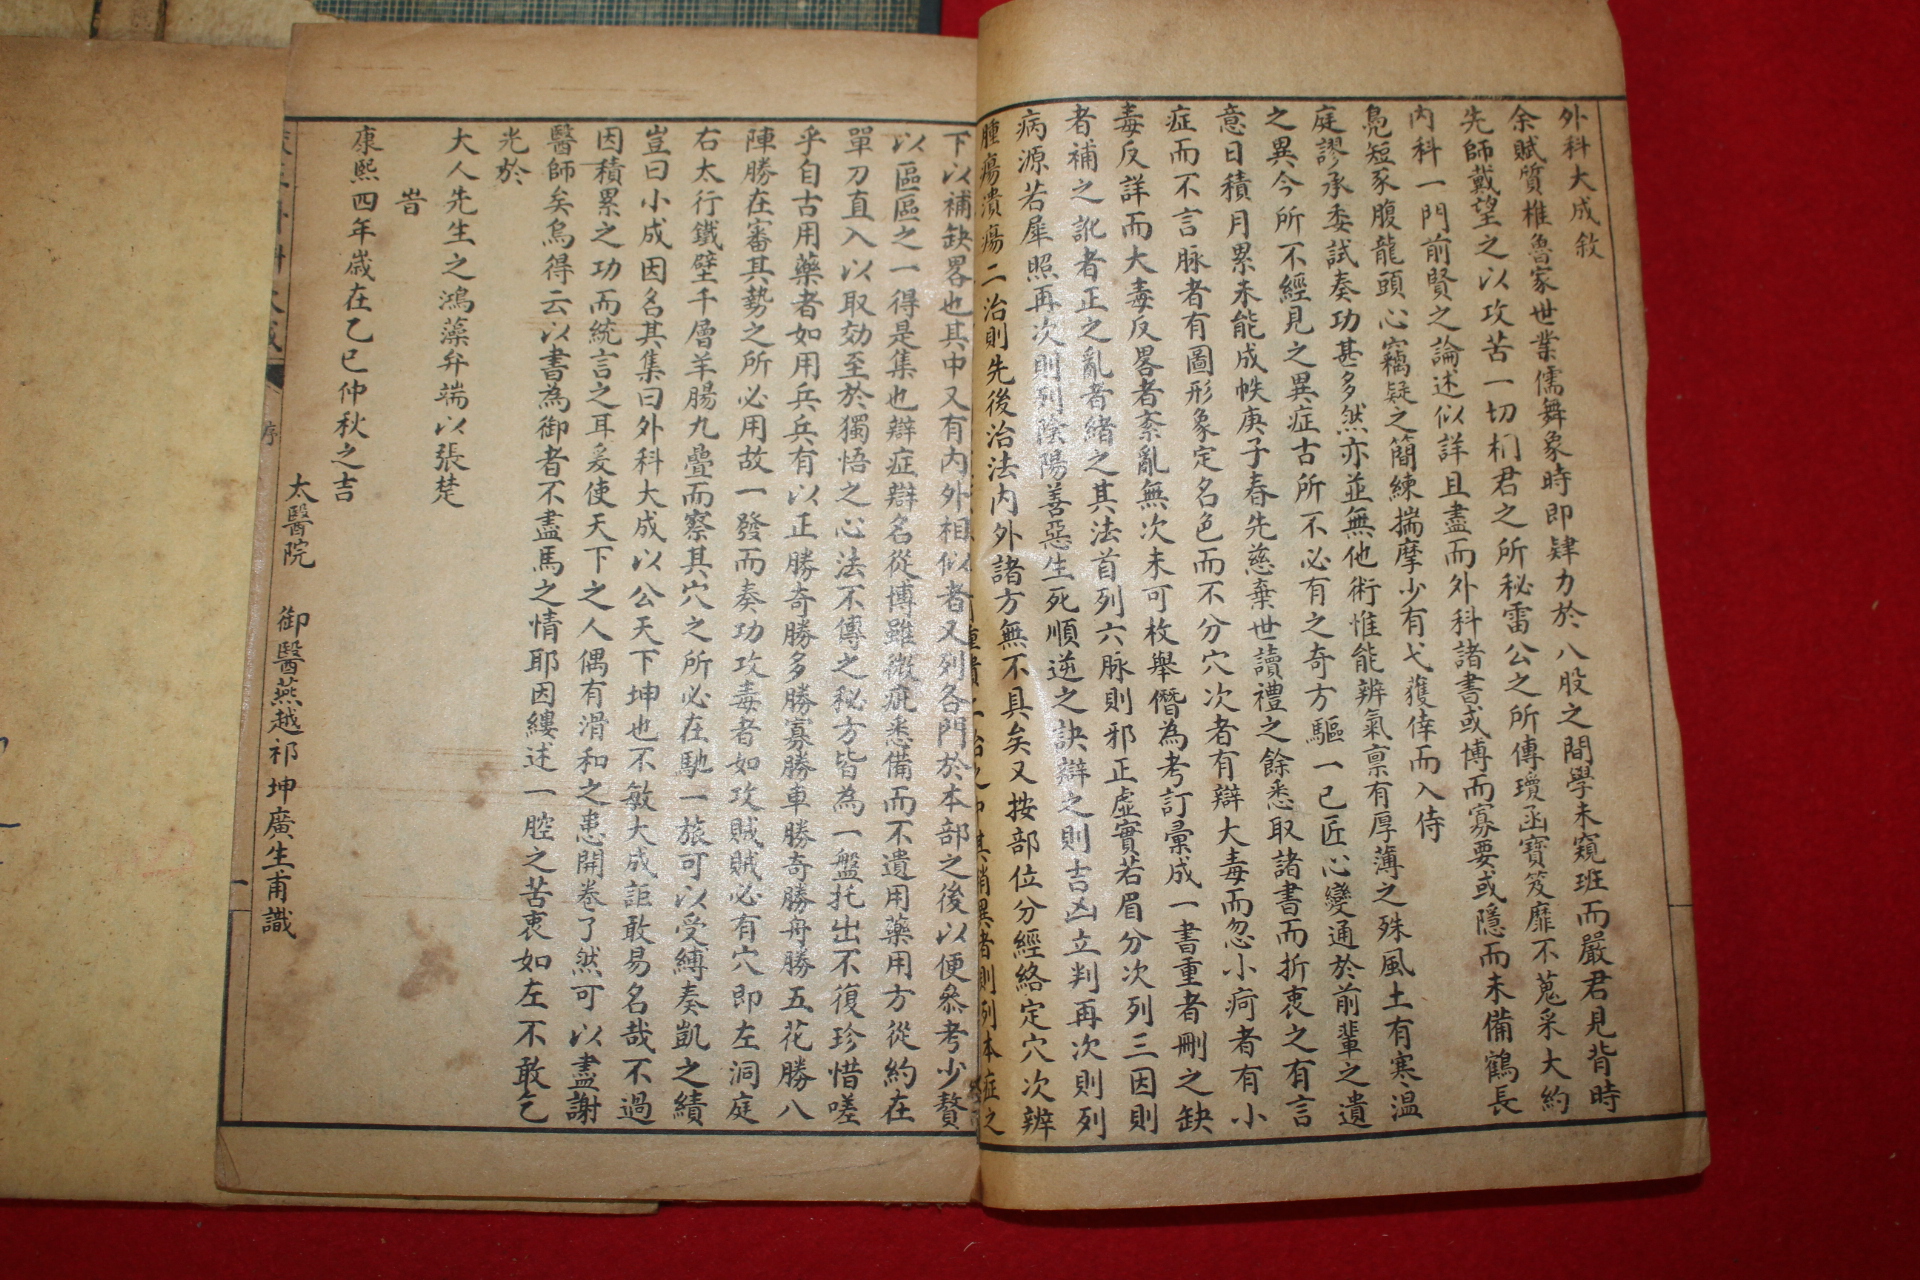 外科大成敘
余賦質椎魯家世業儒舞象時即肄力於八股之間學未窺班而嚴君見背時
先師戴望之以攻苦一切桐君之所秘雷公之所傳瓊函寶笈靡不蒐采大約
內科一門前賢之論述似詳且盡而外科諸書或博而寡要或隱而未備鶴長
鳧短豕腹龍頭心竊疑之簡練揣摩少有弋獲倖而入侍
庭謬承委試奏功甚多然亦並無他術惟能辨氣禀有厚薄之殊風土有寒溫
之異今所不經見之異症古所不必有之奇方驅一己匠心變通於前輩之遺
意日積月累未能成帙庚子春先慈棄世讀禮之餘悉取諸書而折衷之有言
症而不言脉者有圖形象定名色而不分穴次者有辯大毒而忽小疴者有小
毒反詳而大毒反畧者紊亂無次未可枚舉僭為考訂彙成一書重者刪之缺
者補之訛者正之亂者緒之其法首列六脉則邪正虛實若眉分次列三因則
病源若犀照再次則列陰陽善惡生死順逆之訣辯之則吉凶立判再次則列
腫瘍潰瘍二治則先後治法內外諸方無不具矣又按部位分經絡定穴次辨
下以補缺畧也其中又有內外相似者又列各門於本部之後以便叅考少贅
以區區之一得是集也辯症辯名從博雖微疵悉備而不遺用藥用方從約在
單刀直入以取効至於獨悟之心法不傳之秘方皆為一盤托出不復珍惜嗟
乎自古用藥者如用兵兵有以正勝奇勝多勝寡勝車勝奇勝舟勝五花勝八
陣勝在審其勢之所必用故一發而奏功攻毒者如攻賊賊必有穴即左洞庭
右太行鐵壁千層羊腸九疊而察其穴之所必在馳一旅可以受縛奏凱之績
豈曰小成因名其集曰外科大成以公天下坤也不敏大成詎敢易名哉不過
因積累之功而統言之耳爰使天下之人偶有滑和之患開卷了然可以盡謝
醫師矣烏得云以書為御者不盡馬之情耶因縷述一腔之苦衷如左不敢乞
光於
大人先生之鴻藻弁端以張楚
旹
康熙四年歲在乙巳仲秋之吉
太醫院 御醫燕越祁坤廣生甫識
序
一